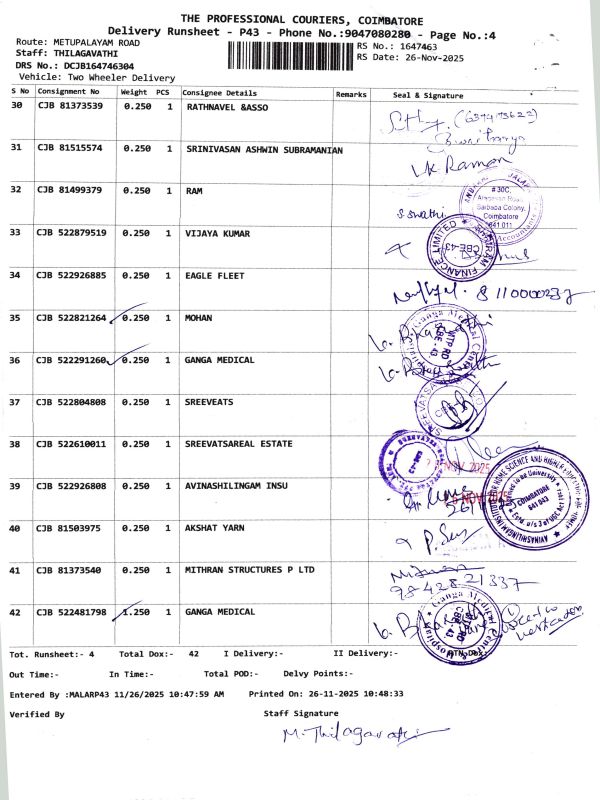 THE PROFESSIONAL COURIERS, COIMBATORE
Delivery Runsheet - P43 - Phone No.:9047080280 - Page No.:4
Route: METUPALAYAM ROAD
Staff: THILAGAVATHI
DRS No.: DCJB164746304
Vehicle: Two Wheeler Delivery
RS No.: 1647463
RS Date: 26-Nov-2025
S No Consignment No Weight PCS Consignee Details Remarks Seal & Signature
30 CJB 81373539 0.250 1 RATHNAVEL &ASSO
31 CJB 81515574 0.250 1 SRINIVASAN ASHWIN SUBRAMANIAN
VK. Raman
32 CJB 81499379 0.250 1 RAM
S Swathi
# 30C,
Sarbaba Colony,
Coimbatore
641 011
33 CJB 522879519 0.250 1 VIJAYA KUMAR
FINANCE LIMITED
CBE-43
34 CJB 522926885 0.250 1 EAGLE FLEET
35 CJB 522821264 0.250 1 MOHAN
Ganga Medical Centre
MTP RD
CBE - 43
36 CJB 522291260 0.250 1 GANGA MEDICAL
37 CJB 522804808 0.250 1 SREEVEATS
38 CJB 522610011 0.250 1 SREEVATSAREAL ESTATE
NOV 2025
39 CJB 522926808 0.250 1 AVINASHILINGAM INSU
NOV 2025
AVINASHILINGAM INSTITUTE FOR HOME SCIENCE AND HIGHER EDUCATION FOR WOMEN
COIMBATORE
641 043
40 CJB 81503975 0.250 1 AKSHAT YARN
41 CJB 81373540 0.250 1 MITHRAN STRUCTURES P LTD
98428 21337
42 CJB 522481798 1.250 1 GANGA MEDICAL
Ganga Medical Centre
MTP RD
CBE - 43
Tot. Runsheet:- 4 Total Dox:- 42 I Delivery:- II Delivery:-
Out Time:- In Time:- Total POD:- Delvy Points:-
Entered By :MALARP43 11/26/2025 10:47:59 AM Printed On: 26-11-2025 10:48:33
Verified By Staff Signature
M. Thilagavathi